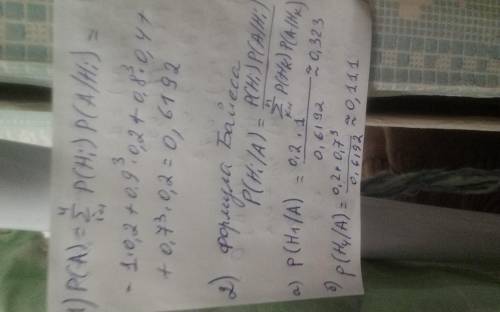 1) P(A) = ∑ᵢ₌₁⁴ P(Hi) P(A/Hi) =
= 1·0.2 + 0.9³·0.2 + 0.8³·0,4 +
+ 0,7³·0.2 = 0,6192
2) формула Байеса
P(Hi/A) = P(Hi) P(A/Hi) / ∑ P(Hk) P(A/Hk)
а) P(H1/A) = 0.2·1 / 0,6192 ≈ 0,323
б) P(H4/A) = 0.2·0,7³ / 0,6192 ≈ 0,111